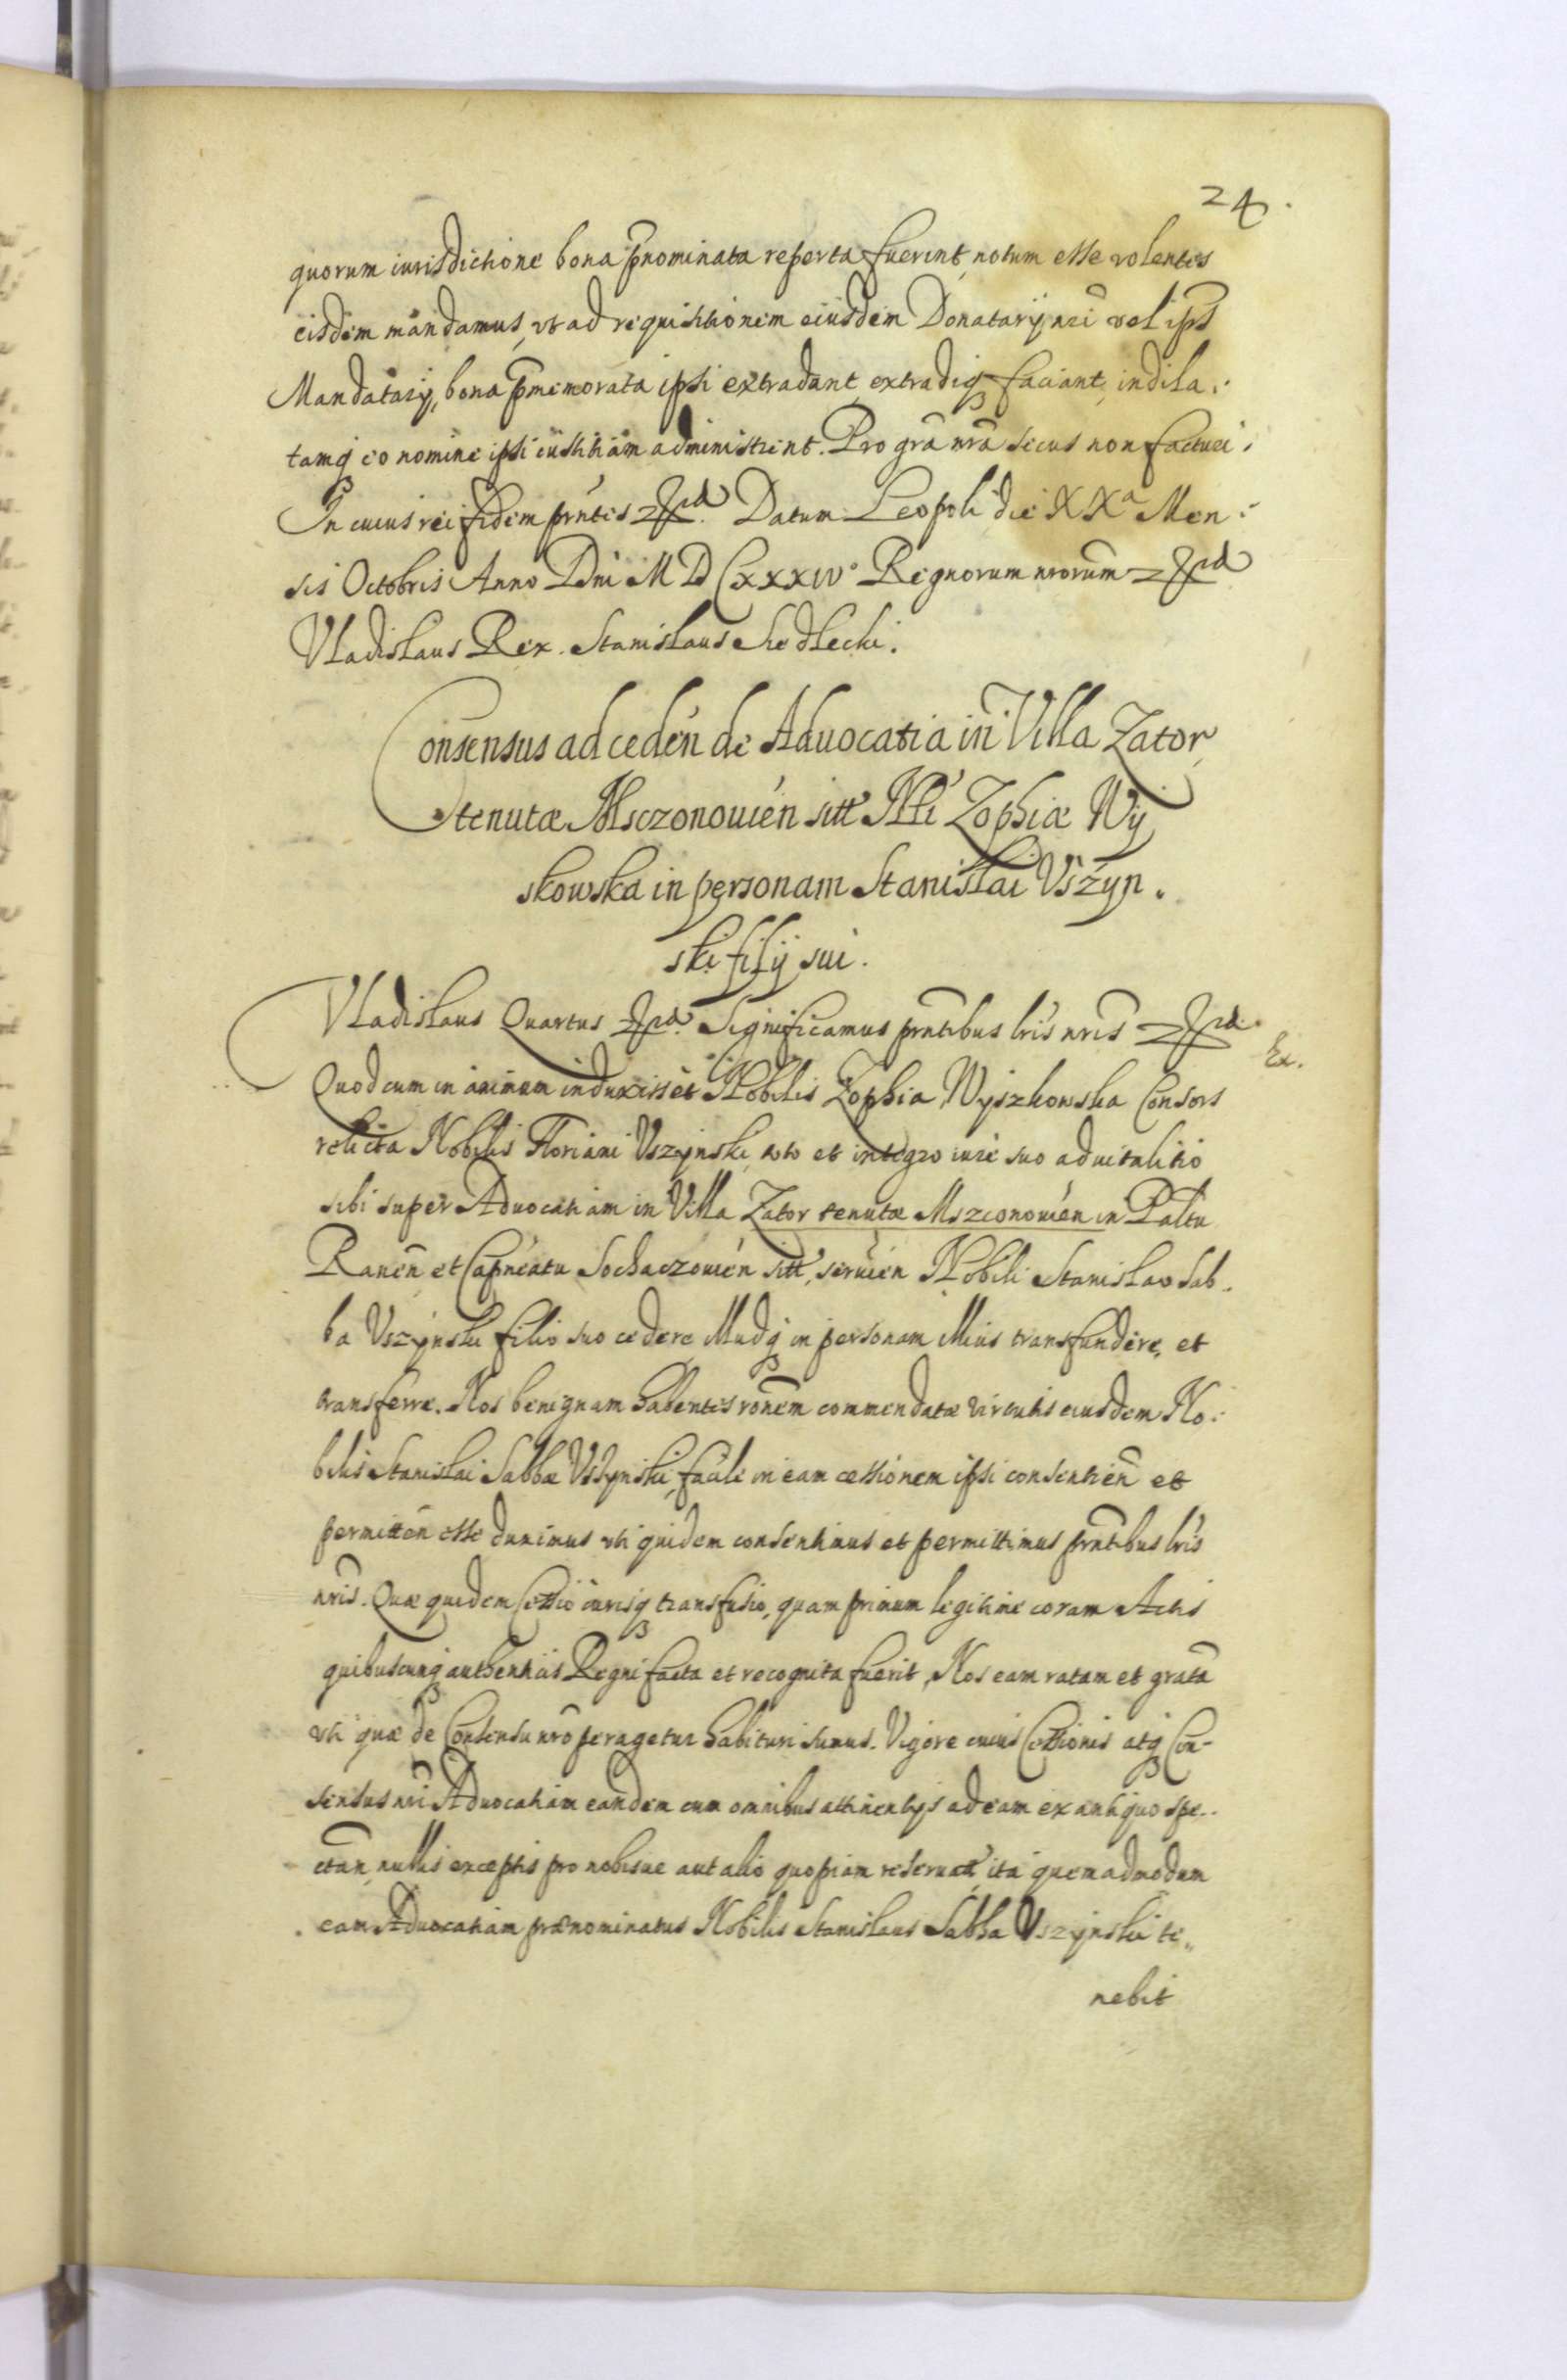 24.
quorum iurisdictione bona p̃nominata reperta fuerint, notum esse volentes
eisdem mandamus, vt ad requisitionem eiusdem Donatarij nri vel ips⁹
Mandatarij, bona p̃memorata ipsi extradant, extradiq; faciant, indila:
tamq; eo nomine ipsi iustitiam administrent. Pro gr̃a nr̃a secus non facturi:
In cuius rei fidem pn̄tes etc. Datum Leopoli die XXa Men:
sis Octobris Anno Dni M D CxxxIVo Regnorum nrorum etc.
Vladislaus Rex. Stanislaus Siedlecki.
Consensus ad ceden̄ de Aduocatia in Villa Zator,
tenutæ Msczonouien̄ sitt Nłi Zophiæ Wy
skowska in personam Stanislai Vszyn.
ski filij sui.
Vladislaus Quartus etc. Significamus pn̄tibus lris nris etc. Ex.
Quod cum in animum induxisset Nobilis Zophia Wyszkowska Consors
relicta Nobilis Floriani Vszynski, toto et integro iure suo aduitalitio
sibi super Aduocatiam in Villa Zator tenutæ Mszconouien̄ in Paltu
Rauen̄ et Capneatu Sochaczouien̄ sitt, seruien̄ Nobili Stanislao Sab.
ba Vszynski filio suo cedere illudq; in personam illius transfundere, et
transferre. Nos benignam habentes rõnem commendatæ virtutis eiusdem No:
bilis Stanislai Sabbæ Vszynski, facile in eam cessionem ipsi consentien̄ et
permitten̄ esse duximus vti quidem consentimus et permittimus pn̄tibus lris
nris. Quæ quidem Cessio iurisq; transfusio, quam primum legitime coram Actis
quibuscunq; authenticis Regni facta et recognita fuerit, Nos eam ratam et gratã
vti quæ de Consensu nro peragetur habituri sumus. Vigore cuius Cessionis atq; Con-
sensus nri Aduocatiam eandem cum omnibus attinentijs ad eam ex antiquo spe..
ctan̄, nullis exceptis pro nobisue aut alio quopiam reseruat̃, ita quemadmodum
eam Aduocatiam prænominatus Nobilis Stanislaus Sabba Vszynski te,,
nebit